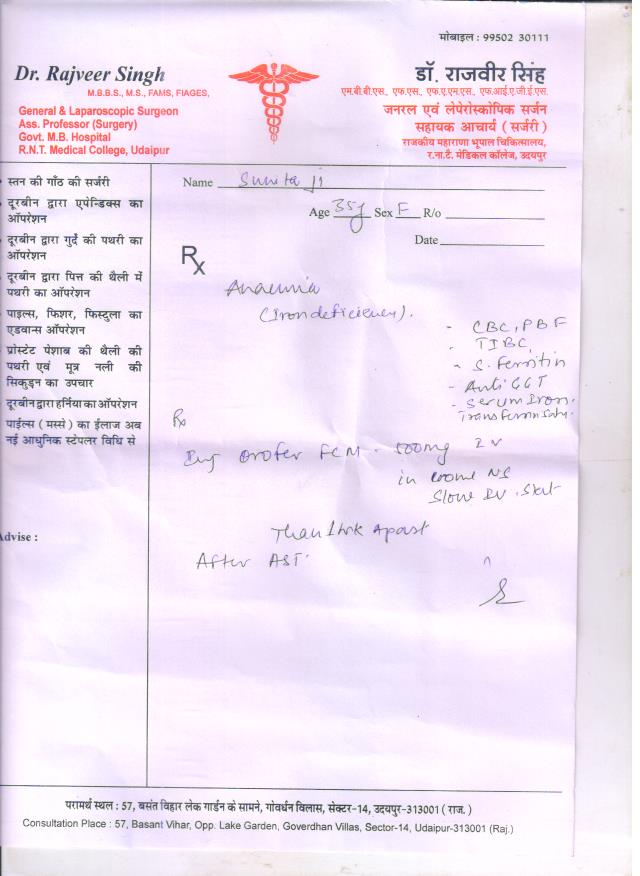 मोबाइल : 99502 30111
Dr. Rajveer Singh
M.B.B.S., M.S., FAMS, FIAGES,
General & Laparoscopic Surgeon
Ass. Professor (Surgery)
Govt. M.B. Hospital
R.N.T. Medical College, Udaipur
डॉ. राजवीर सिंह
एम.बी.बी.एस., एफ.एस., एफ.ए.एम.एस., एफ.आई.ए.जी.ई.एस.
जनरल एवं लेपेरोस्कोपिक सर्जन
सहायक आचार्य (सर्जरी)
राजकीय महाराणा भूपाल चिकित्सालय,
र.ना.टै. मेडिकल कॉलेज, उदयपुर
स्तन की गाँठ की सर्जरी
दूरबीन द्वारा एपेन्डिक्स का
ऑपरेशन
दूरबीन द्वारा गुर्दे की पथरी का
ऑपरेशन
दूरबीन द्वारा पित्त की थैली में
पथरी का ऑपरेशन
पाइल्स, फिशर, फिस्टुला का
एडवान्स ऑपरेशन
प्रोस्टेट पेशाब की थैली की
पथरी एवं मूत्र नली की
सिकुड़न का उपचार
दूरबीन द्वारा हर्निया का ऑपरेशन
पाईल्स (मस्से) का ईलाज अब
नई आधुनिक स्टेपलर विधि से
Advise :
Name Sunita ji
Age 35y Sex F R/o
Date
Rx
Anaemia
(Iron deficiency).
- CBC, PBF
- TIBC
- S. Ferritin
- Anti
- Serum Iron
Rx
Inj Orofer FCM - 500mg IV
in NS
Slow IV. Stat
Apart
After AST.
परामर्थ स्थल : 57, बसंत विहार लेक गार्डन के सामने, गोवर्धन विलास, सेक्टर-14, उदयपुर-313001 ( राज. )
Consultation Place : 57, Basant Vihar, Opp. Lake Garden, Goverdhan Villas, Sector-14, Udaipur-313001 (Raj.)